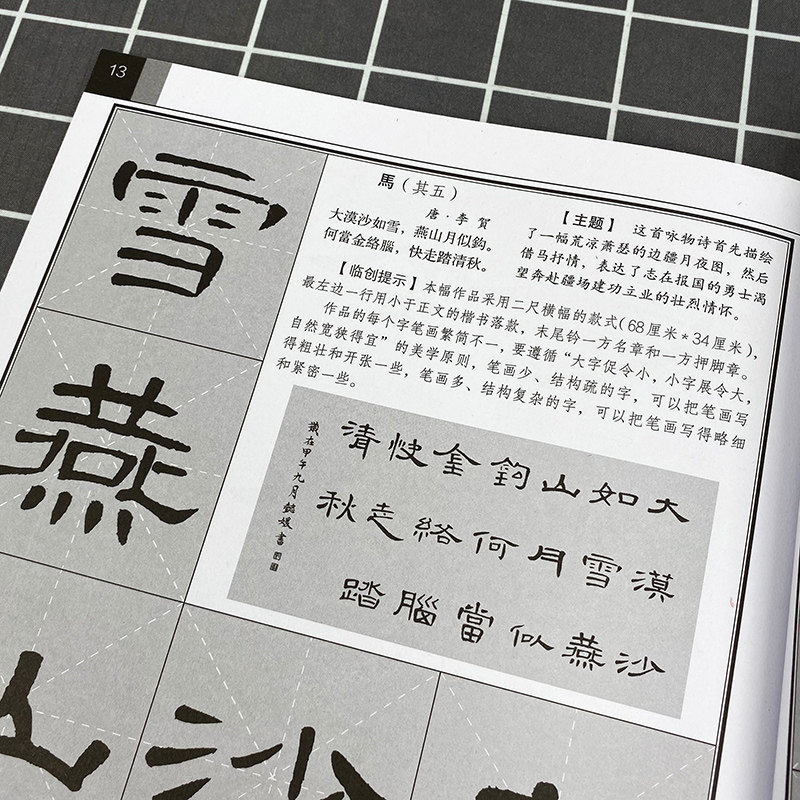 13
馬（其五）
唐·李賀
大漠沙如雪，燕山月似鈎。
何當金絡腦，快走踏清秋。
【主题】 这首咏物诗首先描绘
了一幅荒凉萧瑟的边疆月夜图，然后
借马抒情，表达了志在报国的勇士渴
望奔赴疆场建功立业的壮烈情怀。
【临创提示】本幅作品采用二尺横幅的款式(68厘米*34厘米)，
最左边一行用小于正文的楷书落款，末尾钤一方名章和一方押脚章。
作品的每个字笔画繁简不一，要遵循“大字促令小，小字展令大，
自然宽狭得宜”的美学原则，笔画少、结构疏的字，可以把笔画写
得粗壮和开张一些，笔画多、结构复杂的字，可以把笔画写得略细
和紧密一些。
大漠沙
如雪燕
山月似
鈎何當
金絡腦
快走踏
清秋
歲在甲午九月書
雪
燕
山
沙